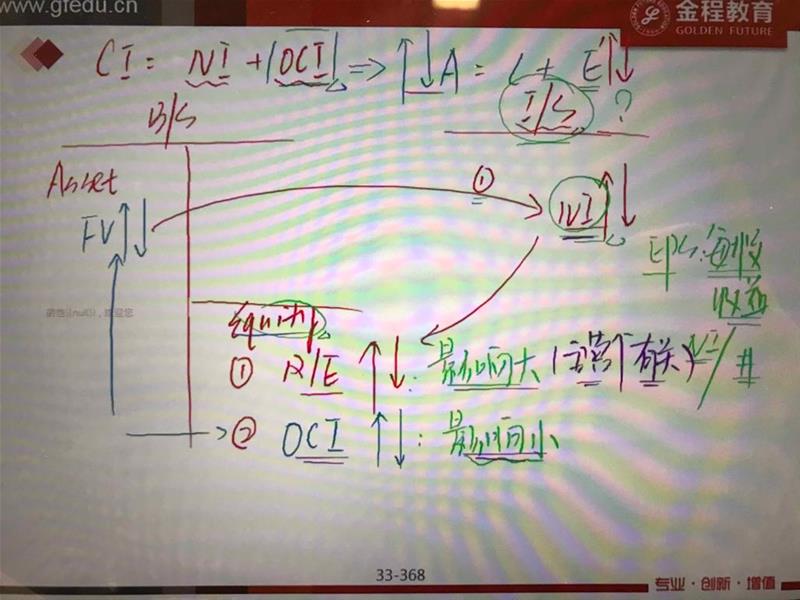 www.gfedu.cn
金程教育
GOLDEN FUTURE
CI = NI + |OCI| => ↑↓A = L + E↑↓
B/S
I/S ?
Asset
FV↑↓
①
NI↑↓
EPS: 每股
收益
NI/#
Equity
① R/E ↑↓: 影响大 (主营 有关)
② OCI ↑↓: 影响小
33-368
专业·创新·增值